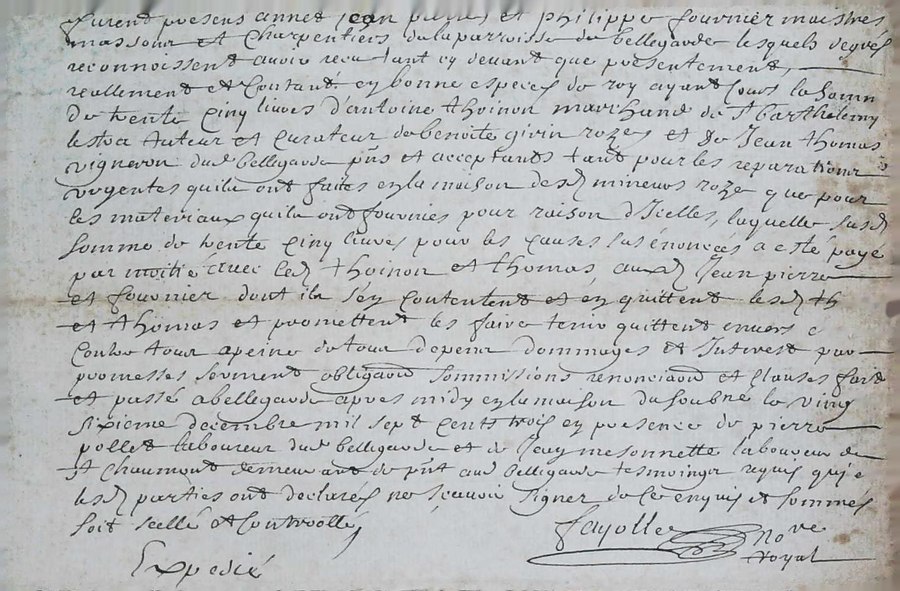 furent presens annet Jean pierre et philippe fournier maistres
massons et Charpentiers de la parroisse de bellegarde lesquels degrés
reconnoissent avoir receu tant cy devant que présentement,
reellement et Contant en bonne especes de roy ayant cours la somme
de trente cinq livres d'antoine thoinon marchand de St barthelemy
lestra tuteur et Curateur de benoite girin rozes et de Jean thomas
vigneron dud bellegarde pnts et acceptants tant pour les reparations
urgentes quils ont faites en la maison desd mineurs roze que pour
les materiaux quils ont fournies pour raison d'Icelles, laquelle susd
somme de trente cinq livres pour les causes sus énoncées a esté payé
par moitié avec lesd thoinon et thomas auxd Jean pierre
et fournier dont ils s'en Contentent et en quittent lesd th
et thomas et promettent les faire tenir quittent envers e
Contre tous a peine de tous depens dommages et Interest par
promesses serment obligaon sommissions renonciaon et clauses fait
et passé a bellegarde apres midy en la maison du soubné le ving
sixieme decembre mil sept cents trois en presence de pierre
pollet laboureur dud bellegarde et de Jean mesonnette laboureur de
St Chaumont demeurant de pnt aud bellegarde tesmoings requis qui e
lesd parties ont declarés ne sçavoir signer de ce enquis et sommés
soit scellé et Controollé,
fayolle no.re royal
Expedié